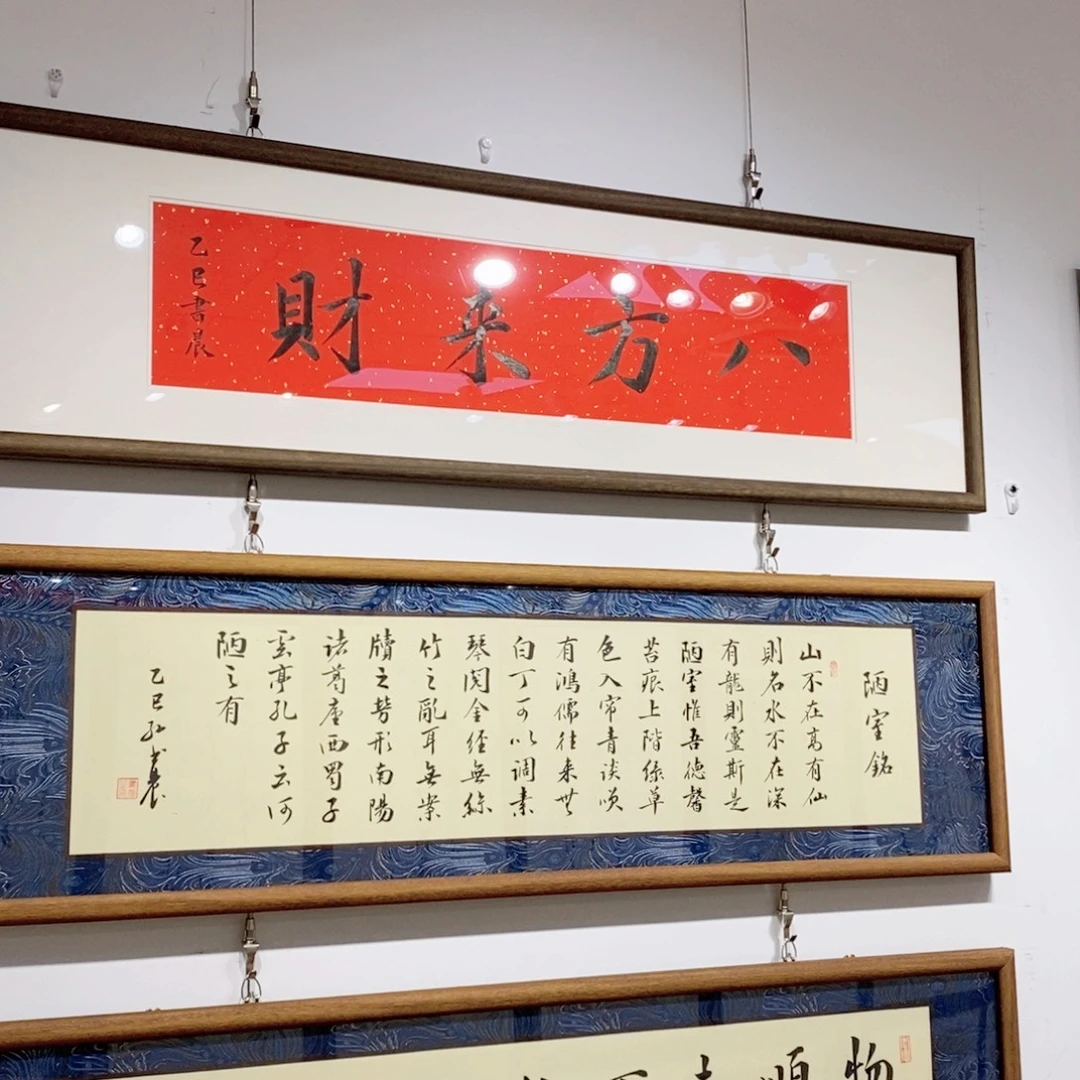 八方来財
乙巳書晨
陋室銘
山不在高有仙
則名水不在深
有龍則靈斯是
陋室惟吾德馨
苔痕上階綠草
色入帘青談笑
有鴻儒往来無
白丁可以調素
琴閱金經無絲
竹之亂耳無案
牘之勞形南陽
諸葛廬西蜀子
雲亭孔子云何
陋之有
乙巳
物順